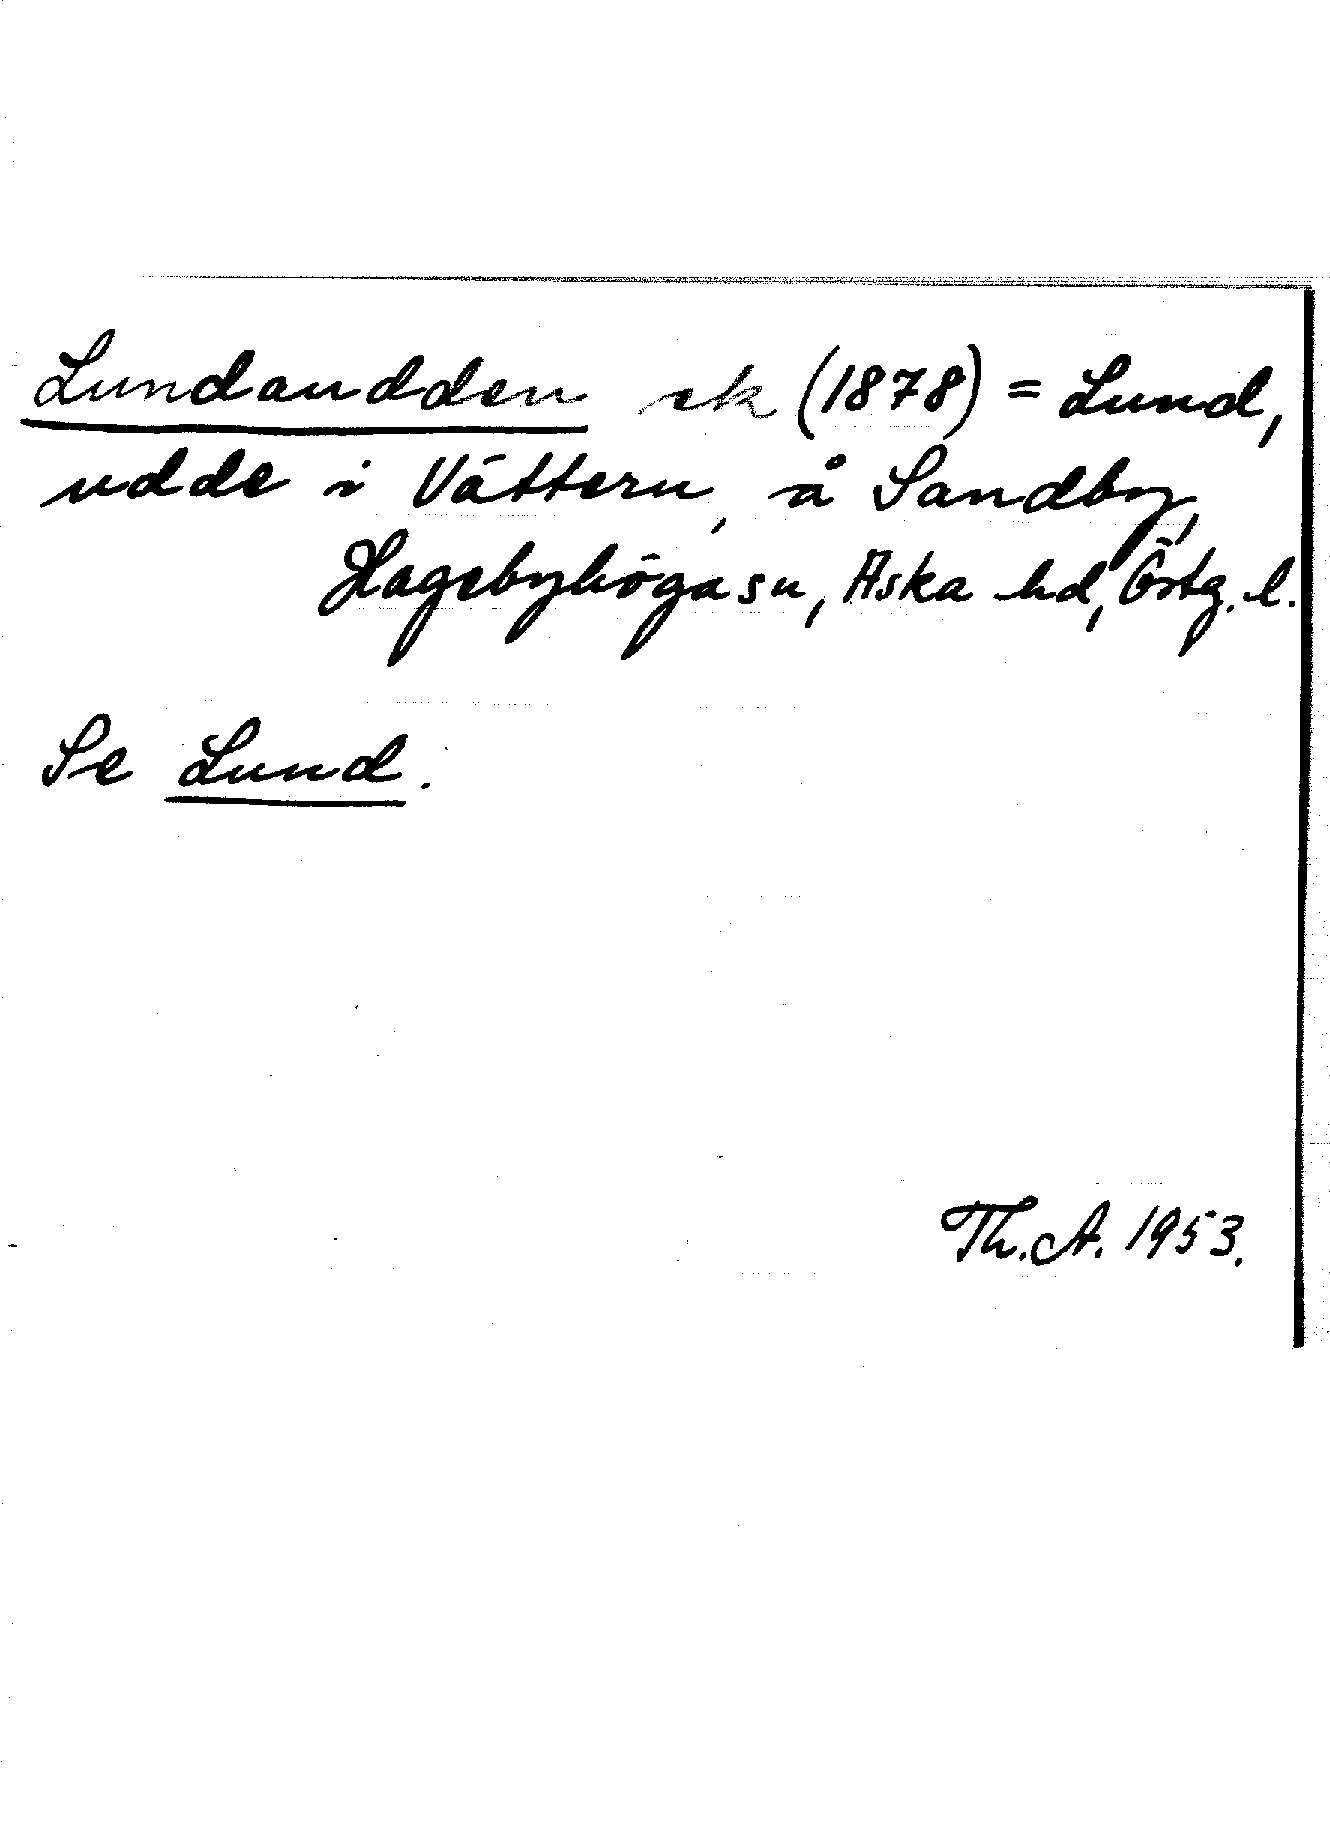 Lundaudden ek (1878) = Lund,
udde i Vättern, å Sandby,
Hagebyhöga sn, Aska hd, Östg. l.
Se Lund.
Th. A. 1953.